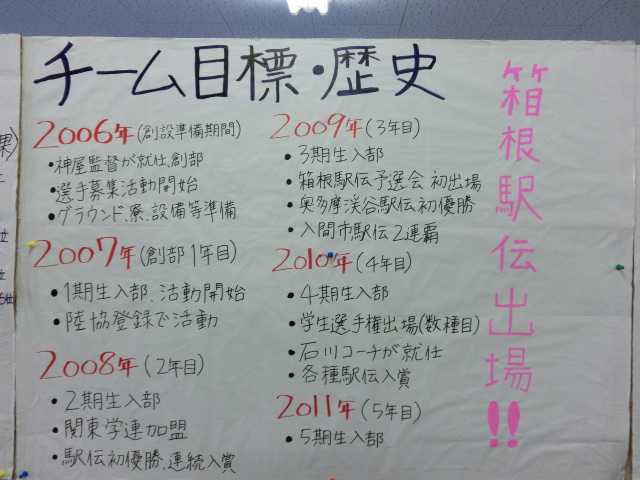 チーム目標・歴史
2006年(創設準備期間)
・神屋監督が就任、創部
・選手募集活動開始
・グラウンド、寮、設備等準備
2007年(創部1年目)
・1期生入部、活動開始
・陸協登録で活動
2008年(2年目)
・2期生入部
・関東学連加盟
・駅伝初優勝、連続入賞
2009年(3年目)
・3期生入部
・箱根駅伝予選会 初出場
・奥多摩渓谷駅伝初優勝
・入間市駅伝2連覇
2010年(4年目)
・4期生入部
・学生選手権出場(数種目)
・石川コーチが就任
・各種駅伝入賞
2011年(5年目)
・5期生入部
箱根駅伝出場!!
果)
位
位
6位